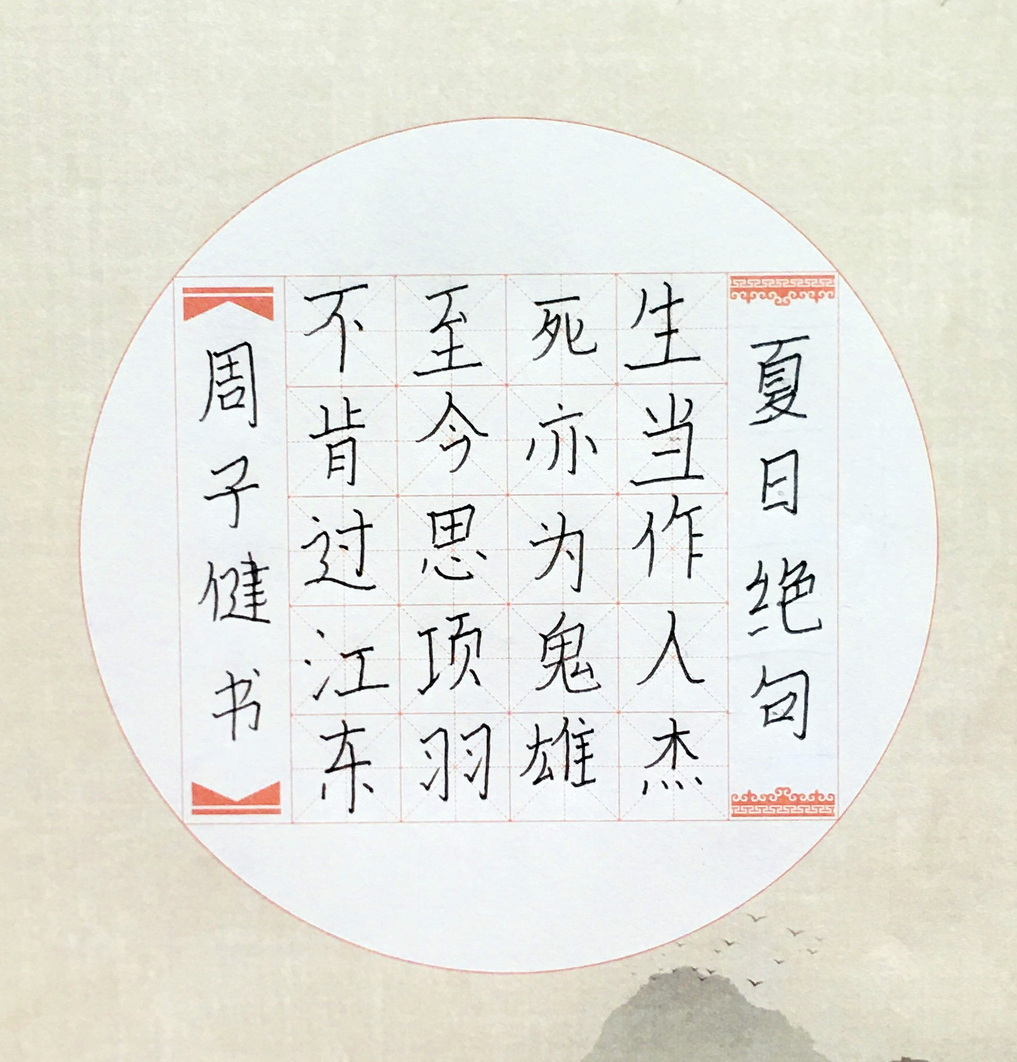 夏日绝句
生当作人杰
死亦为鬼雄
至今思项羽
不肯过江东
周子健书